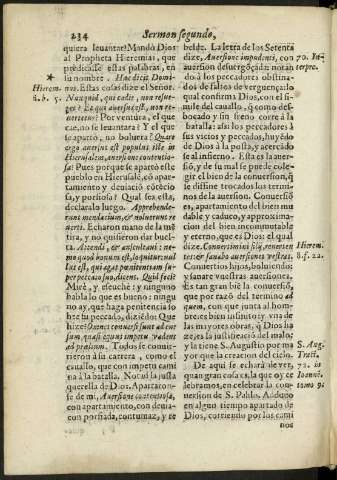 234 Sermon segundo,
quiera leuantar! Mandò Dios
al Propheta Hieremias, que
predicasse estas palabras, en
su nombre. Hæc dicit Domi-
nus. Estas cosas dize el Señor.
Nunquid, qui cadit, non resur-
get? Et qui auersus est, non re-
uertetur? Por ventura, el que
cae, no se leuantara? Y el que
se apartò, no boluera? Quare
ergo auersus est populus iste in
Hierusalem, auersione contentio-
sa? Pues porque se apartò este
pueblo en Hierusalẽ, cõ apar-
tamiento y deuiació cõtécio
sa, y porfiosa? Qual sea esta,
declaralo luego. Apprehende-
runt mendacium, & noluerunt re
uerti. Echaron mano de la mẽ
tira, y no quisieron dar buel-
ta. Attendi, & auscultaui: ne-
mo quod bonum est, loquitur: nul
lus est, qui agat pœnitentiam su-
per peccato suo, dicens. Quid feci?
Mirè, y escuchè: y ninguno
habla lo que es bueno: ningu-
no ay, que haga penitencia so
bre su peccado, diziẽdo: Que
hize? Omnes conuersi sunt ad cur
sum, quasi equus impetu vadens
ad prælium. Todos se conuir-
tieron à su carrera, como el
cauallo, que con impetu cami
na à la batalla. Notad la justa
querella de Dios. Apartaron-
se de mi, Auersione contentiosa,
con apartamiento, con deuia-
cion porfiada, contumaz, y re
*
Hierem.
8. b. 5.
belde. La letra de los Setenta
dize, Auersione impudenti, con
auersion desuergõçada: notan
do à los peccadores obstina-
dos de faltos de verguença: lo
qual confirma Dios, con el si-
mile del cauallo, q̃ como des-
bocado y sin freno corre à la
batalla: assi los peccadores à
sus vicios y peccados, huyẽdo
de Dios à la posta, y acercãdo
se al infierno. Esta es la auer-
sió, y de su mal se puede cole-
gir el bien de la conuersion, q̃
le dissine trocados los termi-
nos de la auersion. Conuersió
es, apartamiento del bien mu
dable y caduco, y approxima-
cion del bien incommutable
y eterno, que es Dios: el qual
dize. Conuertimini filij, reuerten
tes: & sanabo auersiones vestras.
Conuertios hijos, boluiendos
y sanare vuestras auersiones.
Es tan gran biẽ la conuersió,
que por razó del termino ad
quem, con que junta al hom-
bre: es bien infinito: y vna de
las mayores obras, q̃ Dios ha
ze, es la justificació del malo:
y la tiene S. Augustin por ma
yor que la creacion del cielo.
De aqui se echarà de ver,
quan gran cosa es, la que oy ce
lebramos, en celebrar la con-
uersion de S. Pablo. Anduuo
en algun tiempo apartado de
Dios, corriendo por los cami
nos
70. In-
terpre.
Hierem.
8. f. 22.
S. Aug.
Tract.
72. in
Ioannē.
tomo 9.